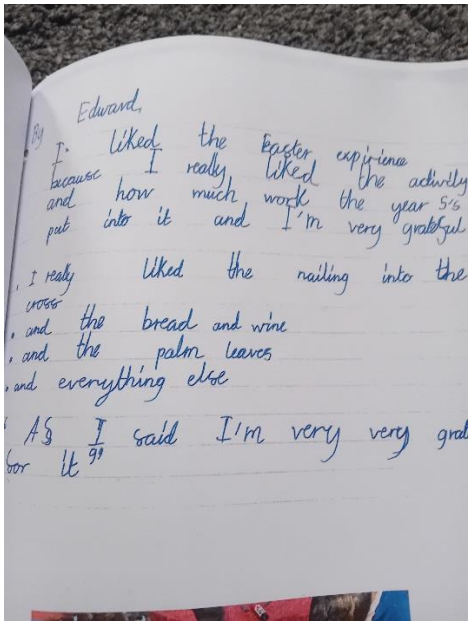 By Edward,
I. liked the Easter expirience
because I really liked the activity
and how much work the year 5's
put into it and I'm very grateful
. I really liked the nailing into the
cross
. and the bread and wine
. and the palm leaves
. and everything else
" AS I said I'm very very grat
for it "